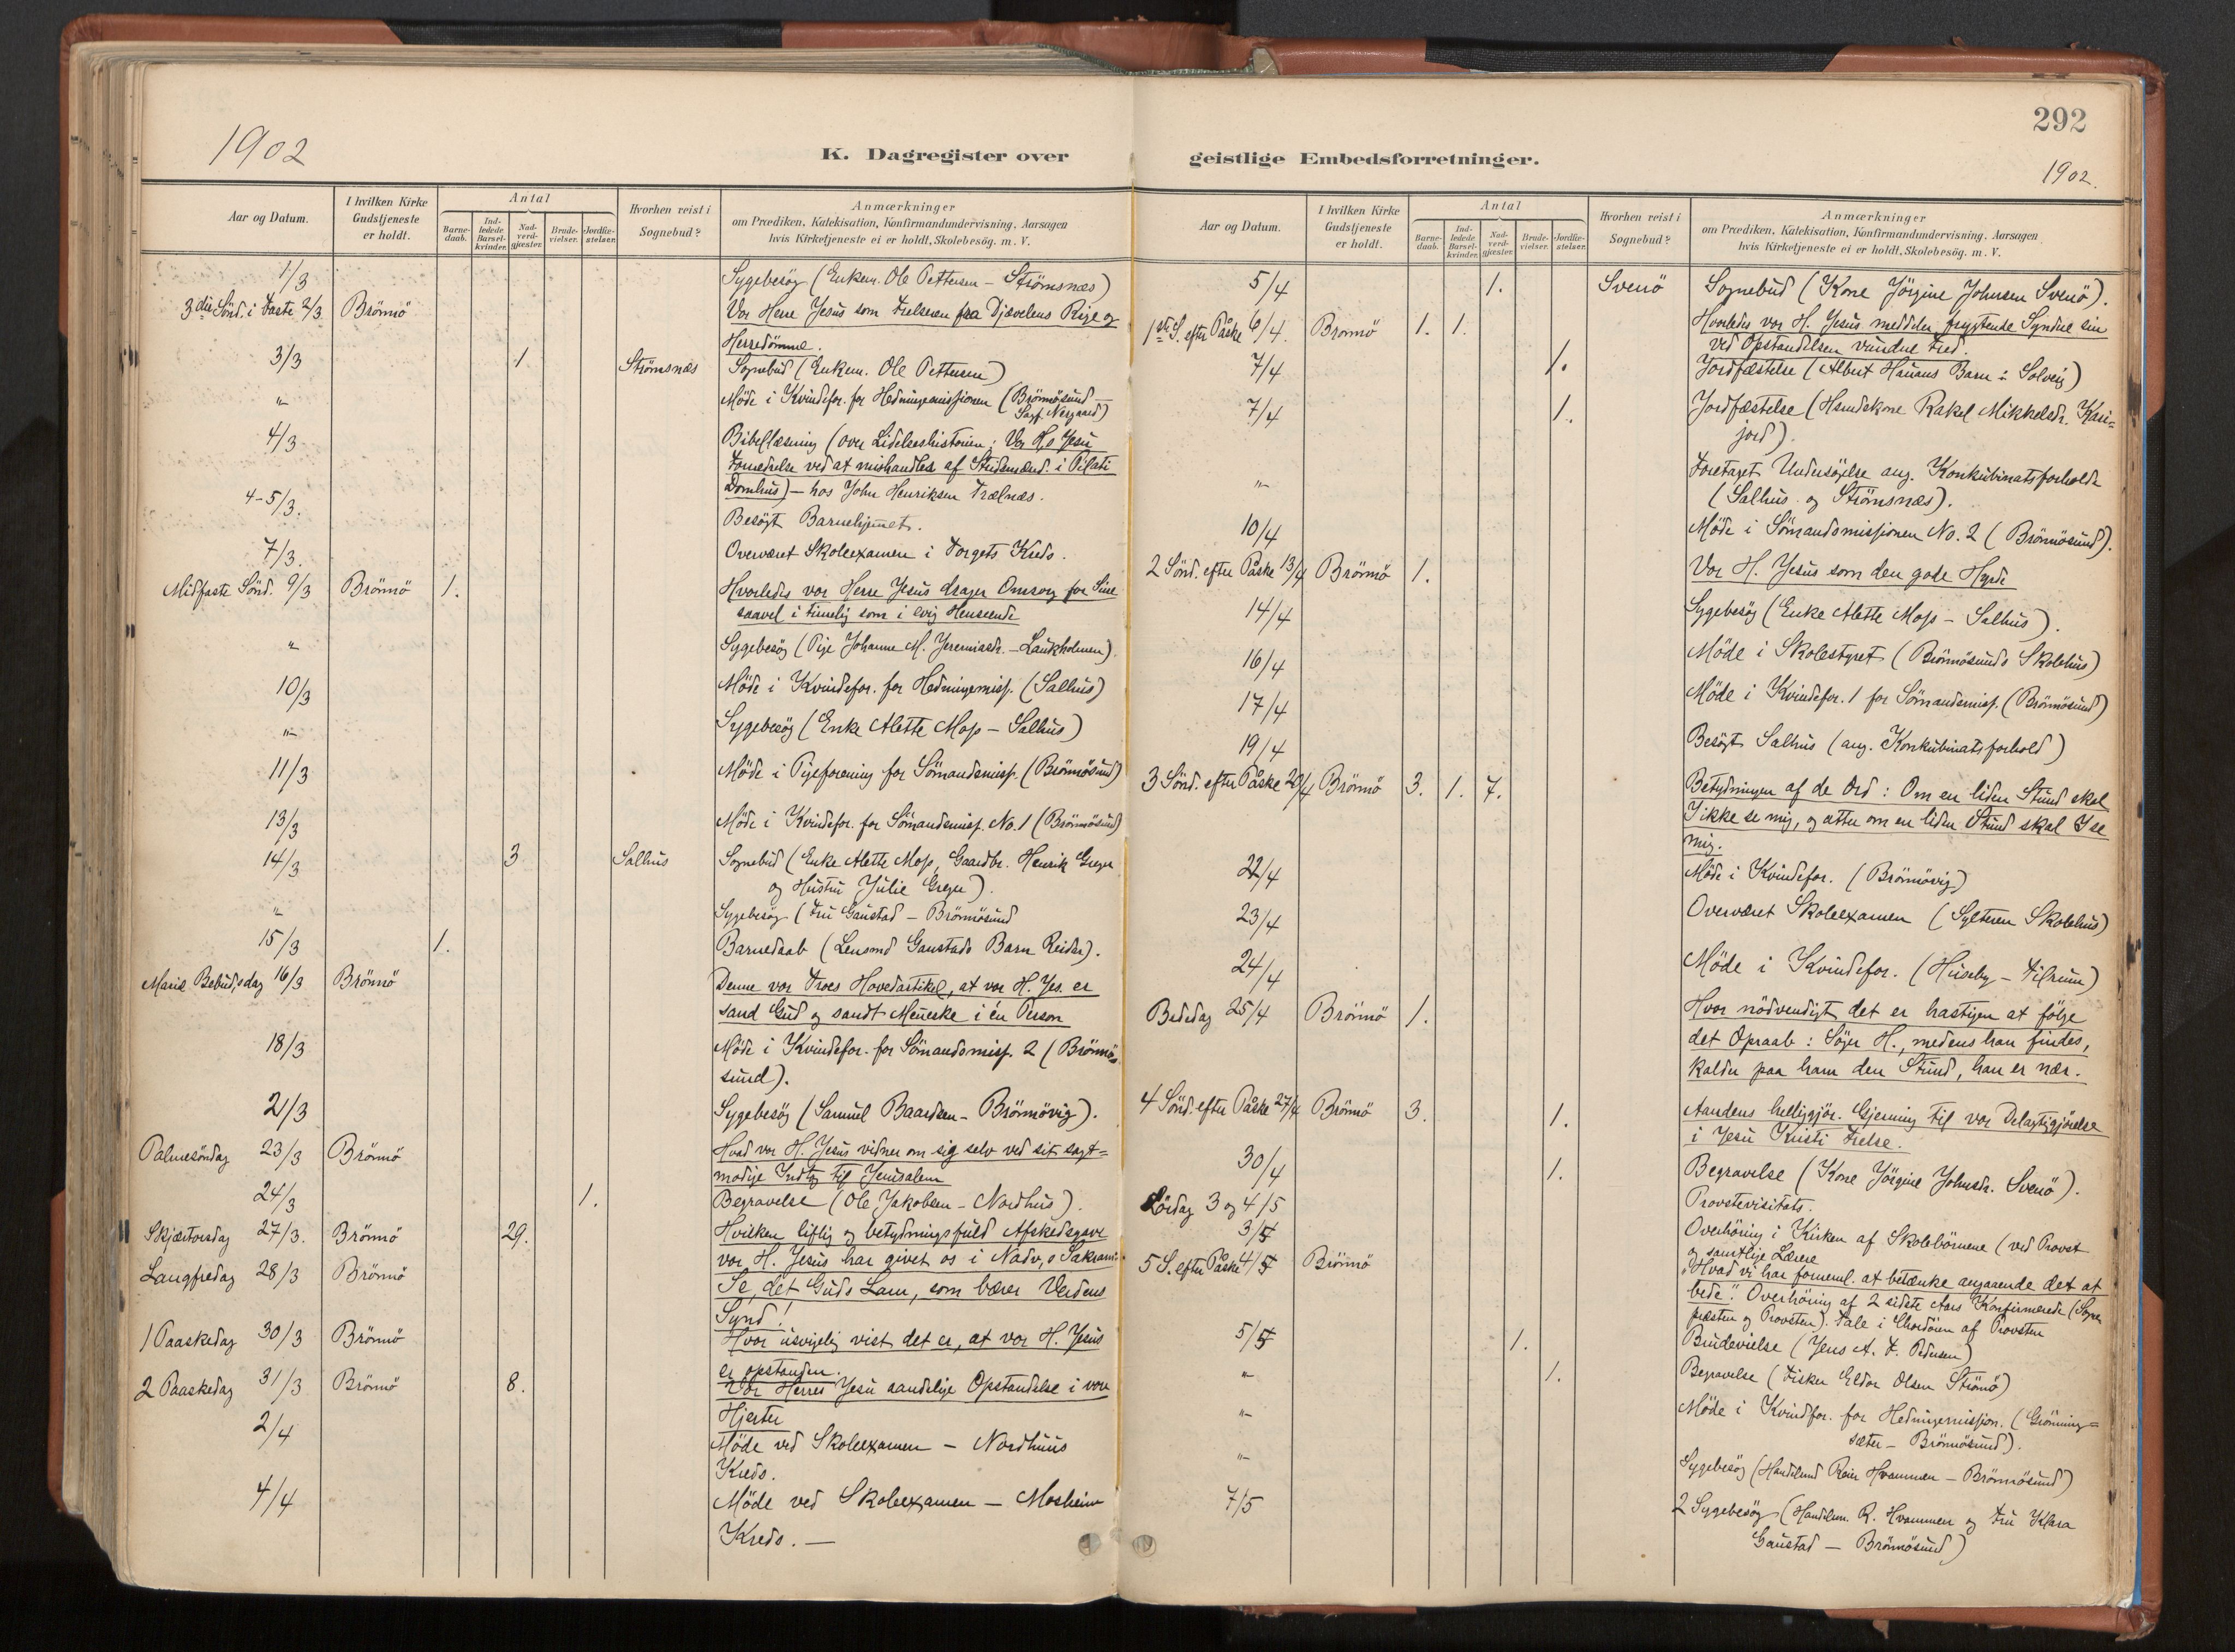 1902
K. Dagregister over
Aar og Datum.
I hvilken Kirke Gudstjeneste er holdt.
Antal
Barnedaab.
Indledede Barselkvinder.
Nadverdgjæster.
Brudevielser.
Jordfæstelser.
Hvorhen reist i Sognebud?
Anmærkninger
om Prædiken, Katekisation, Konfirmandundervisning, Aarsagen
hvis Kirketjeneste ei er holdt, Skolebesøg. m. V.
1/3 Sygebesög (Enkem. Ole Pettersen - Strömsnæs)
3die Sönd. i Faste 2/3 Brönnö Vor Herre Jesus som Frelseren fra Djævelens Rige og
Herredömme.
3/3 1 Strömsnæs Sognebud (Enkem. Ole Pettersen)
"- Möde i Kvindefor. for Hedningemissionen (Brönnösund -
4/3 Bibellæsning (over Lidelseshistorien: Vor H. Jesu
Fornedrelse ved at mishandles af Stridsmænd. i Pilati
Domhus) - hos John Henriksen Trælnæs.
4-5/3. Besögt Barnehjemmet.
7/3. Overværet Skoleexamen i Torgets Kreds.
Midfaste Sönd. 9/3 Brönnö 1. Hvorledes vor Herre Jesus drager Omsorg for Sine
saavel i timelig som i evig Henseende
"- Sygebesög (Pige Johanne M. Jeremiasdr. - Laukholmen)
10/3 Möde i Kvindefor. for Hedningemiss. (Salhus)
"- Sygebesög (Enke Alette Moss - Salhus)
11/3 Möde i Pigeforening for Sömandsmiss. (Brönnösund)
13/3 Möde i Kvindefor. for Sömandsmiss. No. 1 (Brönnösund)
14/3 3 Salhus Sognebud (Enke Alette Moss, Gaardbr. Henrik Greger
og Hustru Julie Greger).
"- Sygebesög (Fru Gaustad - Brönnösund
15/3 1. Barnedaab (Lensmd Gaustads Barn Reidar).
Mariæ Bebud,sdag 16/3 Brönnö Denne vor Troes Hovedartikel, at vor H. Jes. er
sand Gud og sandt Menneske i én Person
18/3 Möde i Kvindefor. for Sömandsmiss. 2 (Brönnö-
sund).
21/3 Sygebesög (Samuel Baardsen - Brönnövig).
Palmesöndag 23/3 Brönnö Hvad vor H. Jesus vidner om sig selv ved sit sagt=
modige Indtog til Jerusalem
24/3 1. Begravelse (Ole Jakobsen - Nordhus).
Skjærtorsdag 27/3. Brönnö 29. Hvilken liflig og betydningsfuld Afskedsgave
vor H. Jesus har givet os i Nadv,s Sakram.
Langfredag 28/3 Brönnö Se, det Guds Lam, som bærer Verdens
Synd!
1 Paaskedag 30/3 Brönnö Hvor usvigelig vist det er, at vor H. Jesus
er opstanden.
2 Paaskedag 31/3 Brönnö 8. Vor Herres Jesu aandelige Opstandelse i vore
Hjerter
2/4 Möde ved Skoleexamen - Nordhuus
Kreds.
4/4 Möde ved Skoleexamen - Mosheim
Kreds. -
292
1902.
geistlige Embedsforretninger.
Aar og Datum.
I hvilken Kirke Gudstjeneste er holdt.
Antal
Barnedaab.
Indledede Barselkvinder.
Nadverdgjæster.
Brudevielser.
Jordfæstelser.
Hvorhen reist i Sognebud?
Anmærkninger
om Prædiken, Katekisation, Konfirmandundervisning, Aarsagen
hvis Kirketjeneste ei er holdt, Skolebesøg. m. V.
5/4 1. Svenö Sognebud (Kone Jörgine Johnsen Svenö).
1ste S. efter Påske 6/4. Brönnö 1. 1. Hvorledes vor H. Jesus meddeler frygtende Syndere sin
ved Opstandelsen vundne Fred.
7/4 1. Jordfæstelse (Albert Hauans Barn: Solveig)
7/4 1. Jordfæstelse (Hsmdskone Rakel Mikkelsdr. Kari=
jord).
"- Foretaget Undersögelse ang. Konkubinatsforholde
(Salhus og Strömsnæs).
10/4 Möde i Sömandsmissionen No. 2 (Brönnösund).
2 Sönd. efter Påske 13/4 Brönnö 1. Vor H. Jesus som den gode Hyrde
14/4 Sygebesög (Enke Alette Moss - Salhus).
16/4 Möde i Skolestyret (Brönnösunds Skolehus)
17/4 Möde i Kvindefor. 1 for Sömandsmiss. (Brönnösund)
19/4 Besögt Salhus (ang. Konkubinatsforhold)
3 Sönd. efter Påske 20/4 Brönnö 3. 1. 7. Betydningen af de Ord: Om en liden Stund skal
I ikke se mig, og atter om en liden Stund skal I se
mig.
22/4 Möde i Kvindefor. (Brönnövig)
23/4 Overværet Skoleexamen (Sylteren Skolehus)
24/4 Möde i Kvindefor. (Huseby - Tilrum)
Bededag 25/4 Brönnö 1. Hvor nödvendigt det er hastigen at fölge
det Opraab: Söger H., medens han findes,
kalder paa ham den Stund, han er nær.
4 Sönd. efter Påske 27/4 Brönnö 3. 1. Aandens helliggjör. Gjerning til vor Delagtiggjörelse
i Jesu Kristi Frelse.
30/4 1. Begravelse (Kone Jörgine Johnsdr. Svenö).
Lördag 3 og 4/5 Provstevisitats.
3/5 Overhöring i Kirken af Skolebörnene (ved Provst
og samtlige Lærere
5 S. efter Påske 4/5 Brönnö "Hvad vi har forneml. at betænke angaaende det at
bede". Overhöring af 2 sidste Aars Konfirmerede (Sogne
præsten og Provsten). Tale i Chordören af Provsten
5/5 1. Brudevielse (Jens A. F. Pedersen)
"- 1. Begravelse (Fisker Eldor Olsen Strömö)
"- Möde i Kvindfor. for Hedningemission. (Grönning=
sæter - Brönnösund).
"- Sygebesög (Handelsmd Rein Hvammen - Brönnösund)
7/5 2 Sygebesög (Handelsm. R. Hvammen og Fru Klara
Gaustad - Brönnösund)